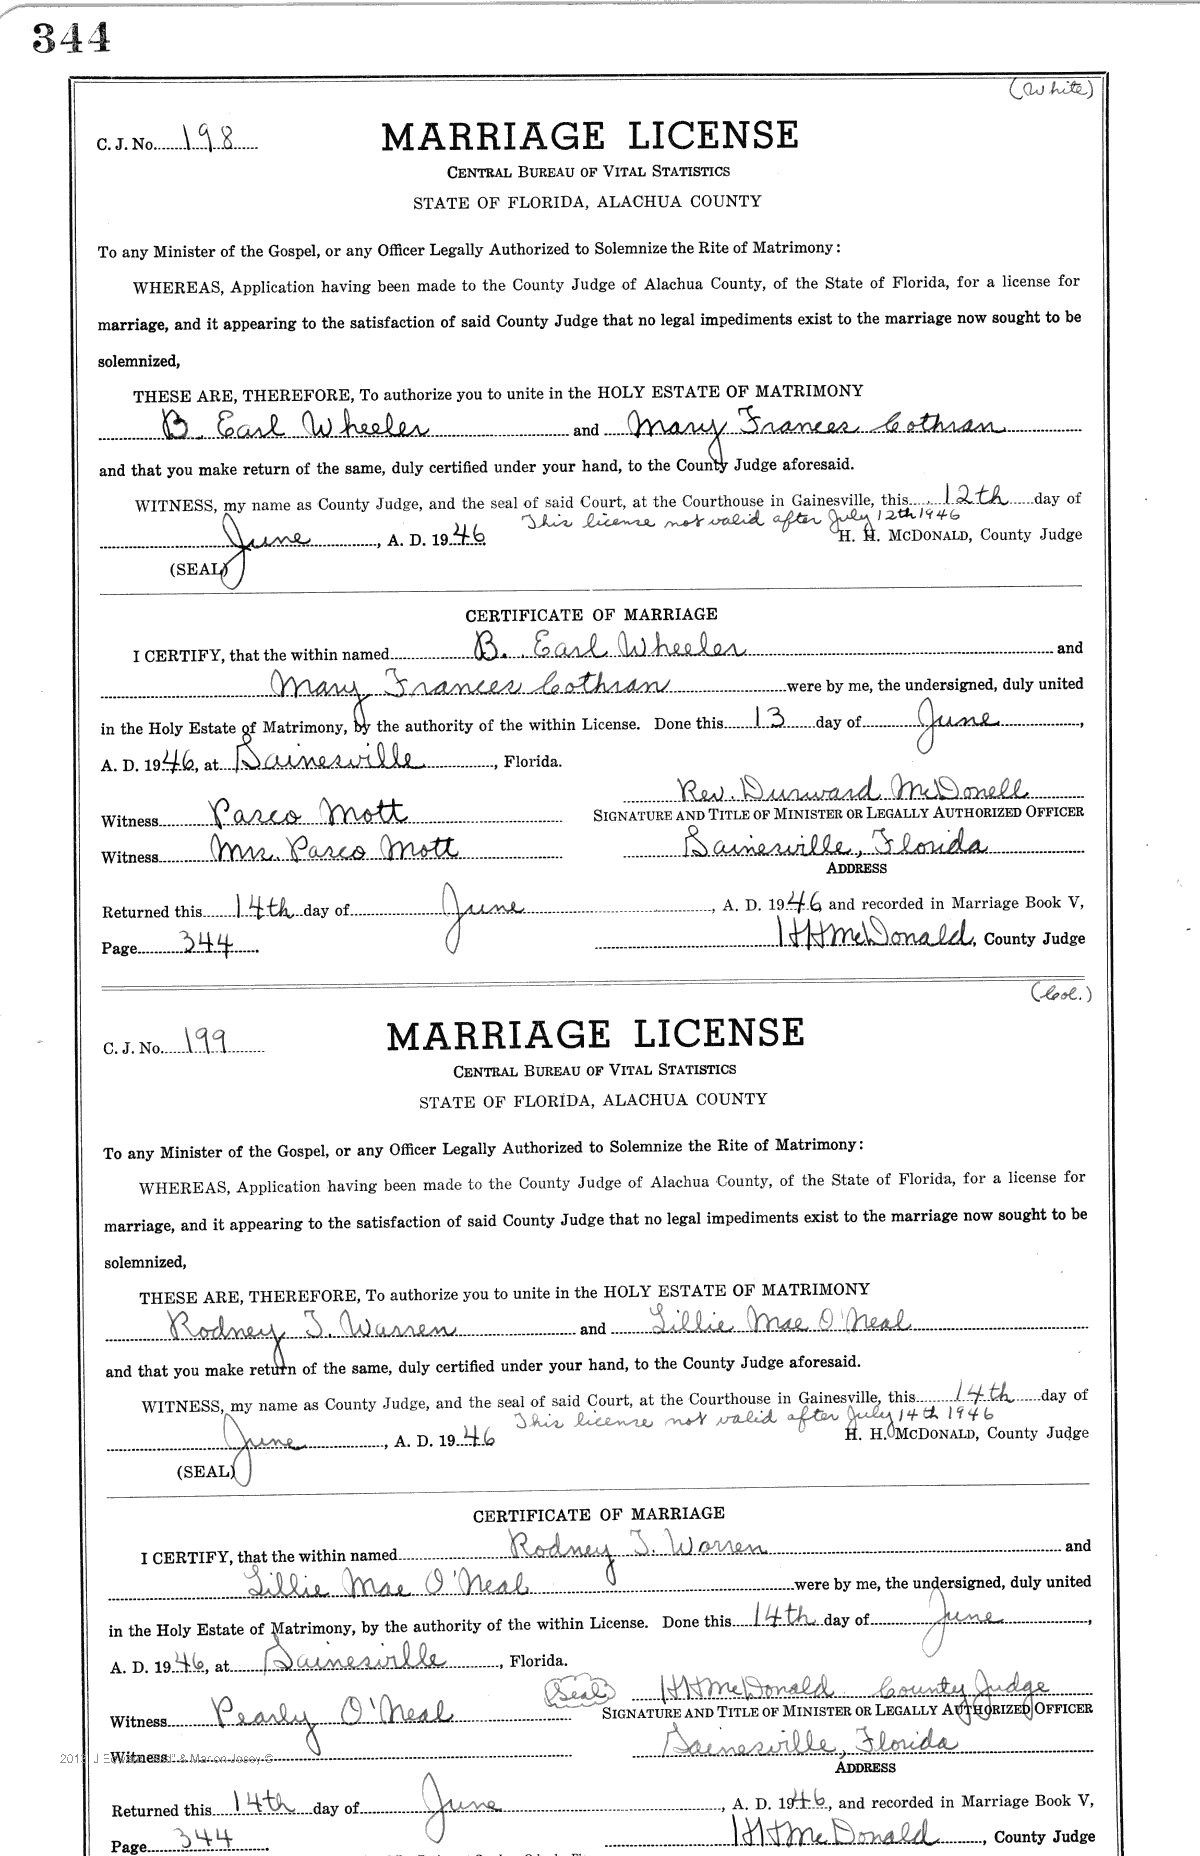 344
(White)
C. J. No. 198
MARRIAGE LICENSE
CENTRAL BUREAU OF VITAL STATISTICS
STATE OF FLORIDA, ALACHUA COUNTY
To any Minister of the Gospel, or any Officer Legally Authorized to Solemnize the Rite of Matrimony:
WHEREAS, Application having been made to the County Judge of Alachua County, of the State of Florida, for a license for
marriage, and it appearing to the satisfaction of said County Judge that no legal impediments exist to the marriage now sought to be
solemnized,
THESE ARE, THEREFORE, To authorize you to unite in the HOLY ESTATE OF MATRIMONY
B. Earl Wheeler and Mary Frances Cothran
and that you make return of the same, duly certified under your hand, to the County Judge aforesaid.
WITNESS, my name as County Judge, and the seal of said Court, at the Courthouse in Gainesville, this 12th day of
This license not valid after July 12th 1946
June, A. D. 1946 H. H. MCDONALD, County Judge
(SEAL)
CERTIFICATE OF MARRIAGE
I CERTIFY, that the within named B. Earl Wheeler and
Mary Frances Cothran were by me, the undersigned, duly united
in the Holy Estate of Matrimony, by the authority of the within License. Done this 13 day of June,
A. D. 1946, at Gainesville, Florida.
Rev. Durward McDonell
Witness Pasco Mott SIGNATURE AND TITLE OF MINISTER OR LEGALLY AUTHORIZED OFFICER
Witness Mrs. Pasco Mott Gainesville, Florida
ADDRESS
Returned this 14th day of June, A. D. 1946 and recorded in Marriage Book V,
Page 344 HHMcDonald, County Judge
(Col.)
C. J. No. 199
MARRIAGE LICENSE
CENTRAL BUREAU OF VITAL STATISTICS
STATE OF FLORIDA, ALACHUA COUNTY
To any Minister of the Gospel, or any Officer Legally Authorized to Solemnize the Rite of Matrimony:
WHEREAS, Application having been made to the County Judge of Alachua County, of the State of Florida, for a license for
marriage, and it appearing to the satisfaction of said County Judge that no legal impediments exist to the marriage now sought to be
solemnized,
THESE ARE, THEREFORE, To authorize you to unite in the HOLY ESTATE OF MATRIMONY
Rodney T. Warren and Lillie Mae O'Neal
and that you make return of the same, duly certified under your hand, to the County Judge aforesaid.
WITNESS, my name as County Judge, and the seal of said Court, at the Courthouse in Gainesville, this 14th day of
This license not valid after July 14th 1946
June, A. D. 1946 H. H. MCDONALD, County Judge
(SEAL)
CERTIFICATE OF MARRIAGE
I CERTIFY, that the within named Rodney T. Warren and
Lillie Mae O'Neal were by me, the undersigned, duly united
in the Holy Estate of Matrimony, by the authority of the within License. Done this 14th day of June,
A. D. 1946, at Gainesville, Florida.
(Seal) HHMcDonald County Judge
Witness Pearly O'Neal SIGNATURE AND TITLE OF MINISTER OR LEGALLY AUTHORIZED OFFICER
Witness Gainesville, Florida
ADDRESS
Returned this 14th day of June, A. D. 1946, and recorded in Marriage Book V,
Page 344 HHMcDonald, County Judge